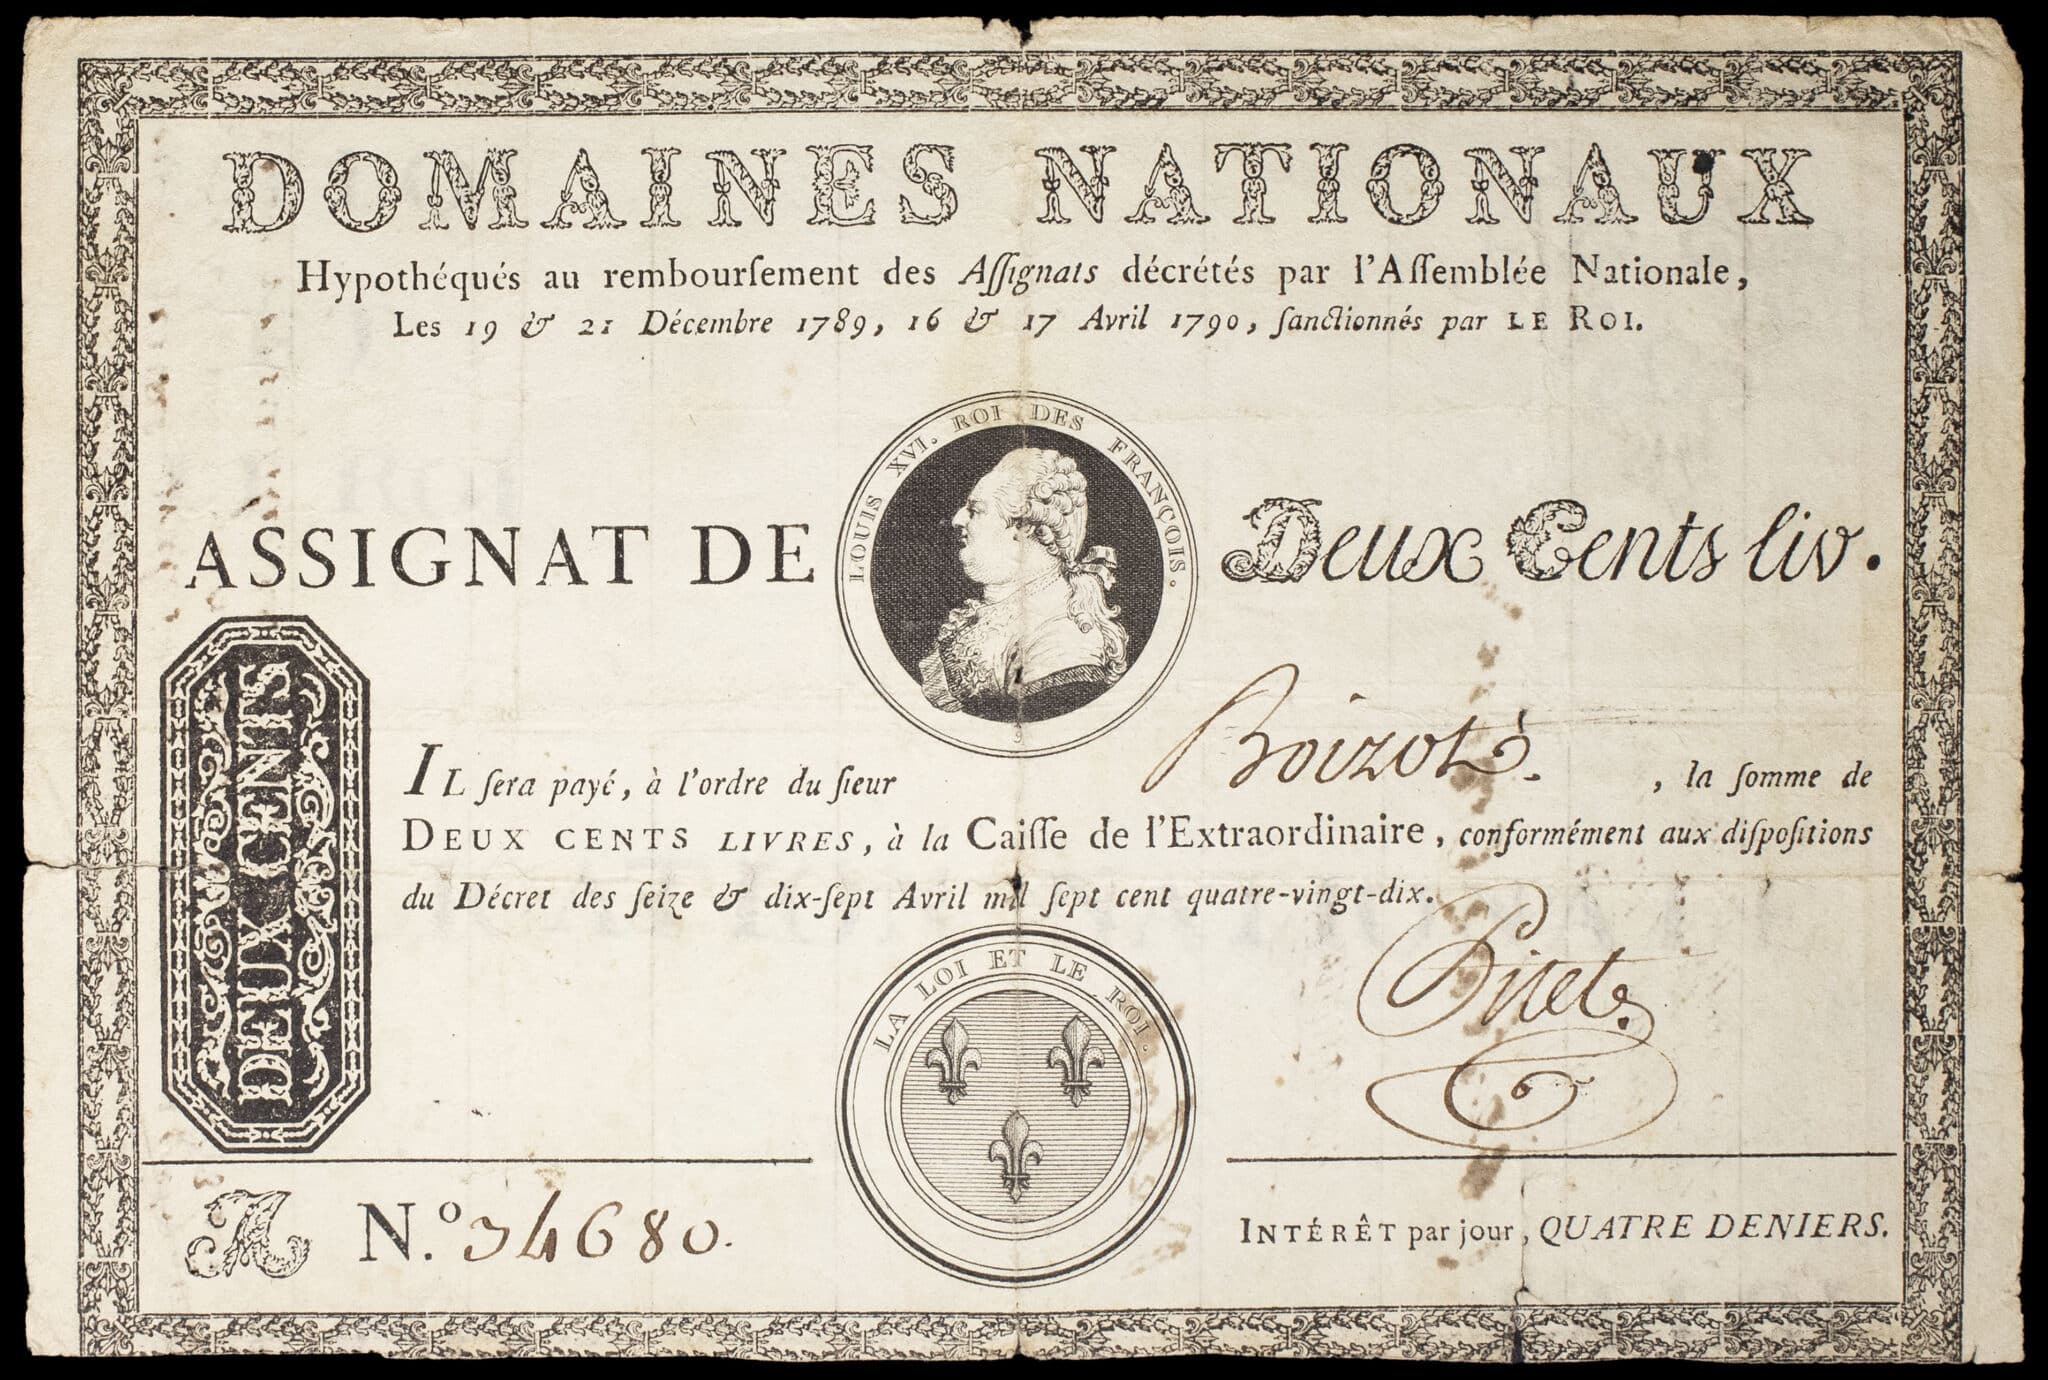 DOMAINES NATIONAUX
Hypothéqués au rembourſement des Aſſignats décrétés par l'Aſſemblée Nationale,
Les 19 & 21 Décembre 1789, 16 & 17 Avril 1790, ſanctionnés par LE ROI.
LOUIS XVI. ROI DES FRANÇOIS.
ASSIGNAT DE Deux Cents liv.
DEUX CENTS
IL ſera payé, à l'ordre du ſieur Boizot, la ſomme de
DEUX CENTS LIVRES, à la Caiſſe de l'Extraordinaire, conformément aux diſpoſitions
du Décret des ſeize & dix-ſept Avril mil ſept cent quatre-vingt-dix.
LA LOI ET LE ROI.
A N.º 34680.
INTÉRÊT par jour, QUATRE DENIERS.